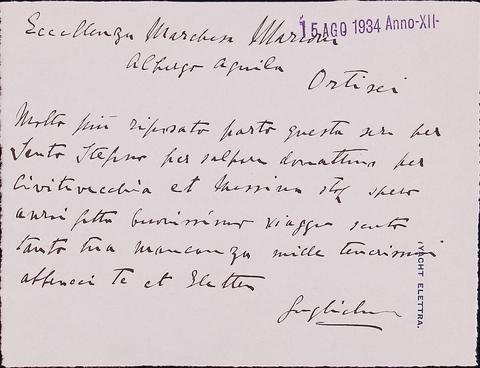 15 AGO 1934 Anno-XII-
Eccellenza Marchesa Marconi
Albergo Aquila
Ortisei
Molto più riposato parto questa sera per
Santo Stefano per salpare domattina per
Civitavecchia et Messina stop spero
fatto buonissimo viaggio sento
tanto tua mancanza mille tenerissimi
abbracci te et Elettra
Guglielmo
YACHT ELETTRA.